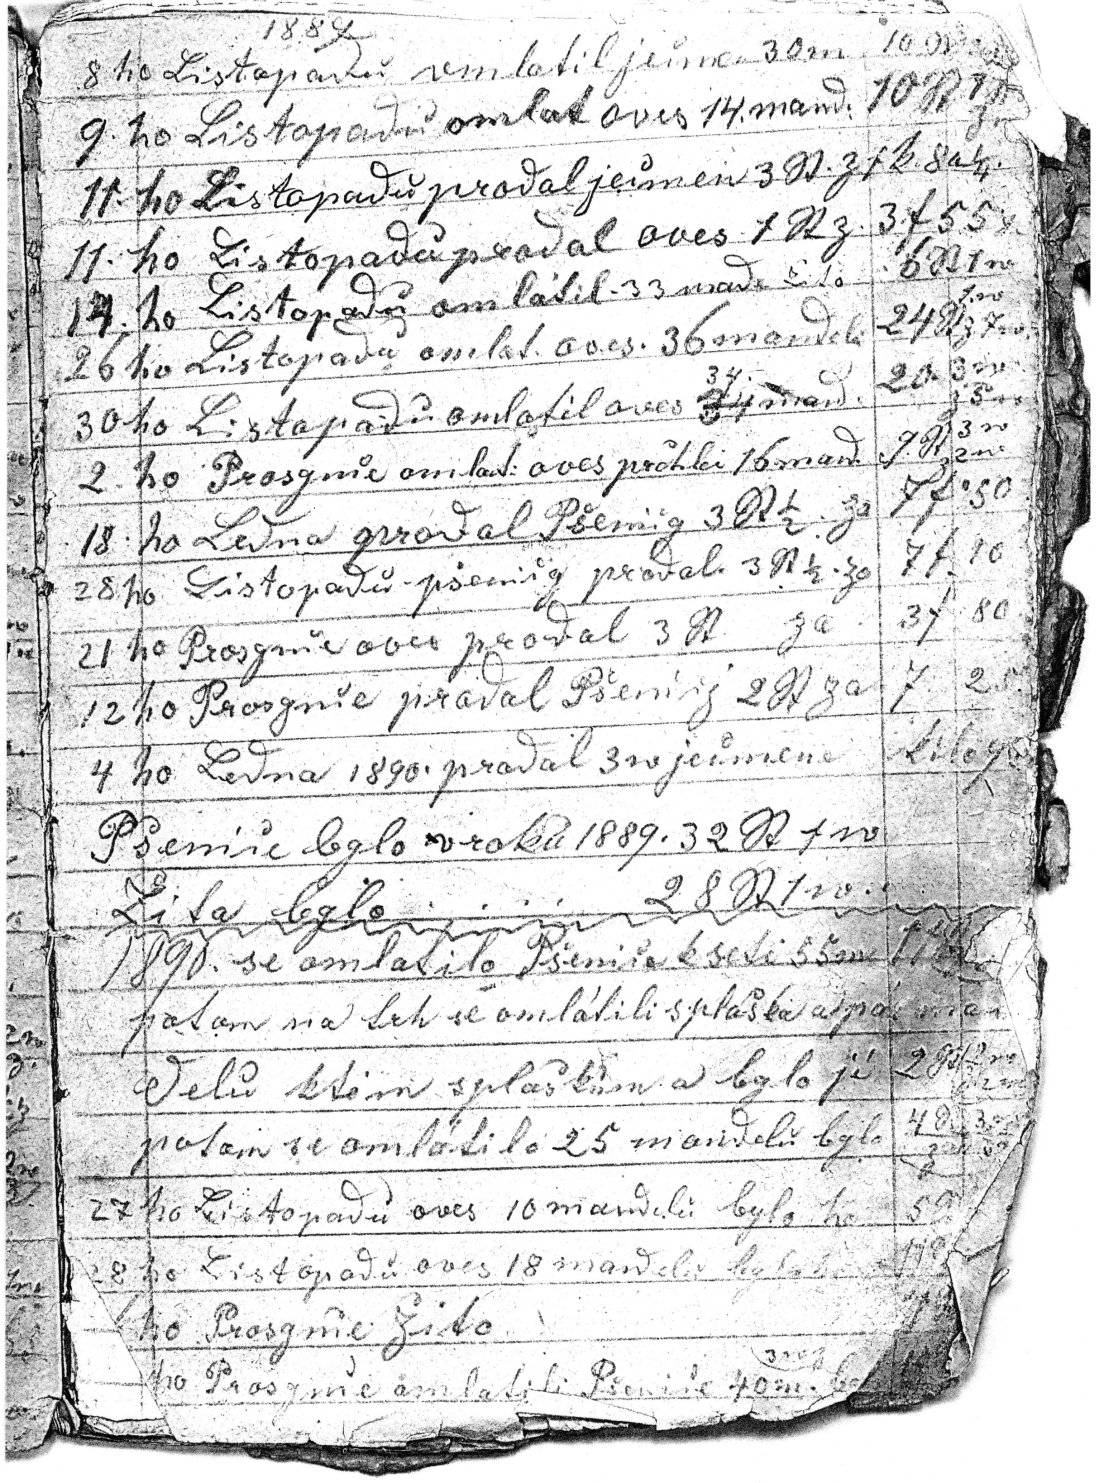 1889
8 ho Listopadu vmlatil ječme 30 m 10
9. ho Listopadu omlat oves 14. mand. 10 St
11. ho Listopadu prodal ječmen 3 St. z
11. ho Listopadu prodal oves 1 St z. 3 f 55
14. ho Listopadu omlátil. 33 mad. žito 6 St 1 w
26 ho Listopadu omlat. oves. 36 mandeli 24 St 1 w z 7 w
30 ho Listopadu omlatil oves 34. mand. 20. 3 w z 5 w
2. ho Prosynie omlat: oves 16 mand. 9. St 3 w 2 w
18. ho Ledna prodal Pšenig 3 St ½. za 7 f. 50
28 ho Listopadu pšenig prodal. 3 St ½. za 7 f. 10
21 ho Prosynie oves prodal 3 St za. 3 f 80
12 ho Prosynie prodal Pšenig 2 St za 7 25
4 ho Ledna 1890. prodal 3 w ječmene
Pšenice bylo v roku 1889. 32 St 1 w
Žita bylo . . . . . 28 St 1 w.
1890. se omlatilo Pšenice k seti 55 m
potom na trh se omlátili a
delu ktem splaškum a bylo ji 2
potom se omlátilo 25 mandelu bylo 4
27 ho Listopadu oves 10 mandelu bylo ho 5
28 ho Listopadu oves 18 mandelu bylo
ho Prosynie Žito
ho Prosynie omlatili Pšenice 40 m.